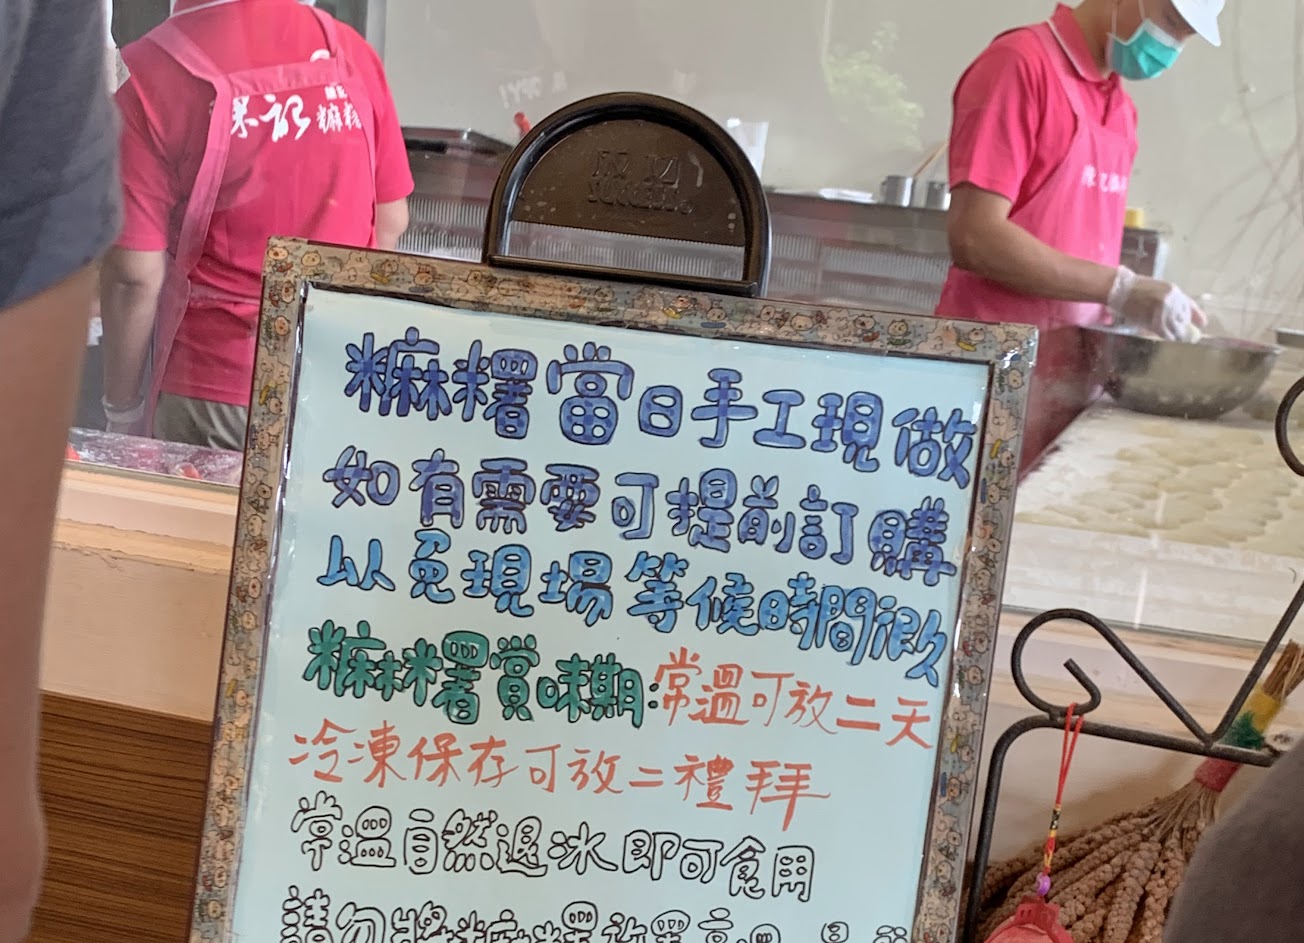 記
糍
麻糬當日手工現做
如有需要可提前訂購
以免現場等候時間很久
麻糬賞味期:常溫可放二天
冷凍保存可放二禮拜
常溫自然退冰即可食用
請勿將麻糬放置高溫